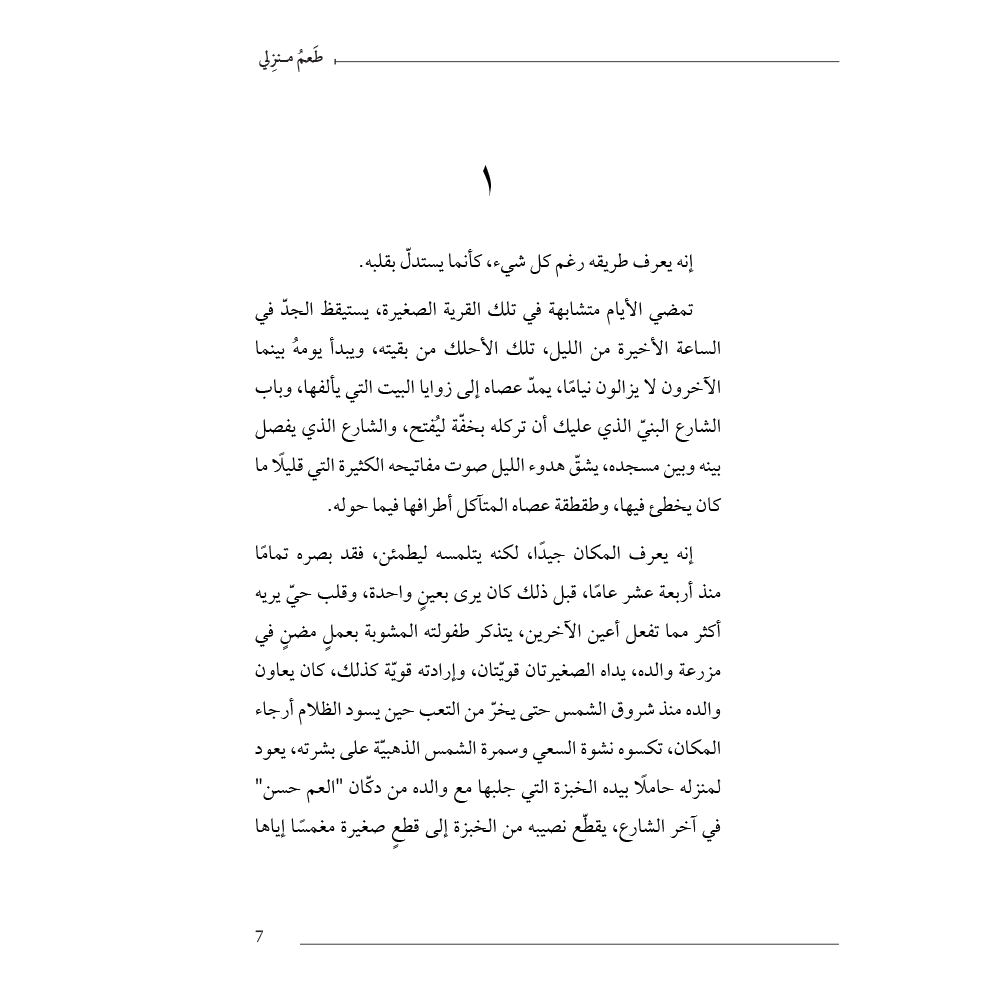 طَعمُ مـنزِلي
١
إنه يعرف طريقه رغم كل شيء، كأنما يستدلّ بقلبه.
تمضي الأيام متشابهة في تلك القرية الصغيرة، يستيقظ الجدّ في
الساعة الأخيرة من الليل، تلك الأحلك من بقيته، ويبدأ يومهُ بينما
الآخرون لا يزالون نيامًا، يمدّ عصاه إلى زوايا البيت التي يألفها، وباب
الشارع البنيّ الذي عليك أن تركله بخفّة ليُفتح، والشارع الذي يفصل
بينه وبين مسجده، يشقّ هدوء الليل صوت مفاتيحه الكثيرة التي قليلًا ما
كان يخطئ فيها، وطقطقة عصاه المتآكل أطرافها فيما حوله.
إنه يعرف المكان جيدًا، لكنه يتلمسه ليطمئن، فقد بصره تمامًا
منذ أربعة عشر عامًا، قبل ذلك كان يرى بعينٍ واحدة، وقلب حيّ يريه
أكثر مما تفعل أعين الآخرين، يتذكر طفولته المشوبة بعملٍ مضنٍ في
مزرعة والده، يداه الصغيرتان قويّتان، وإرادته قويّة كذلك، كان يعاون
والده منذ شروق الشمس حتى يخرّ من التعب حين يسود الظلام أرجاء
المكان، تكسوه نشوة السعي وسمرة الشمس الذهبيّة على بشرته، يعود
لمنزله حاملًا بيده الخبزة التي جلبها مع والده من دكّان "العم حسن"
في آخر الشارع، يقطّع نصيبه من الخبزة إلى قطعٍ صغيرة مغمسًا إياها
7